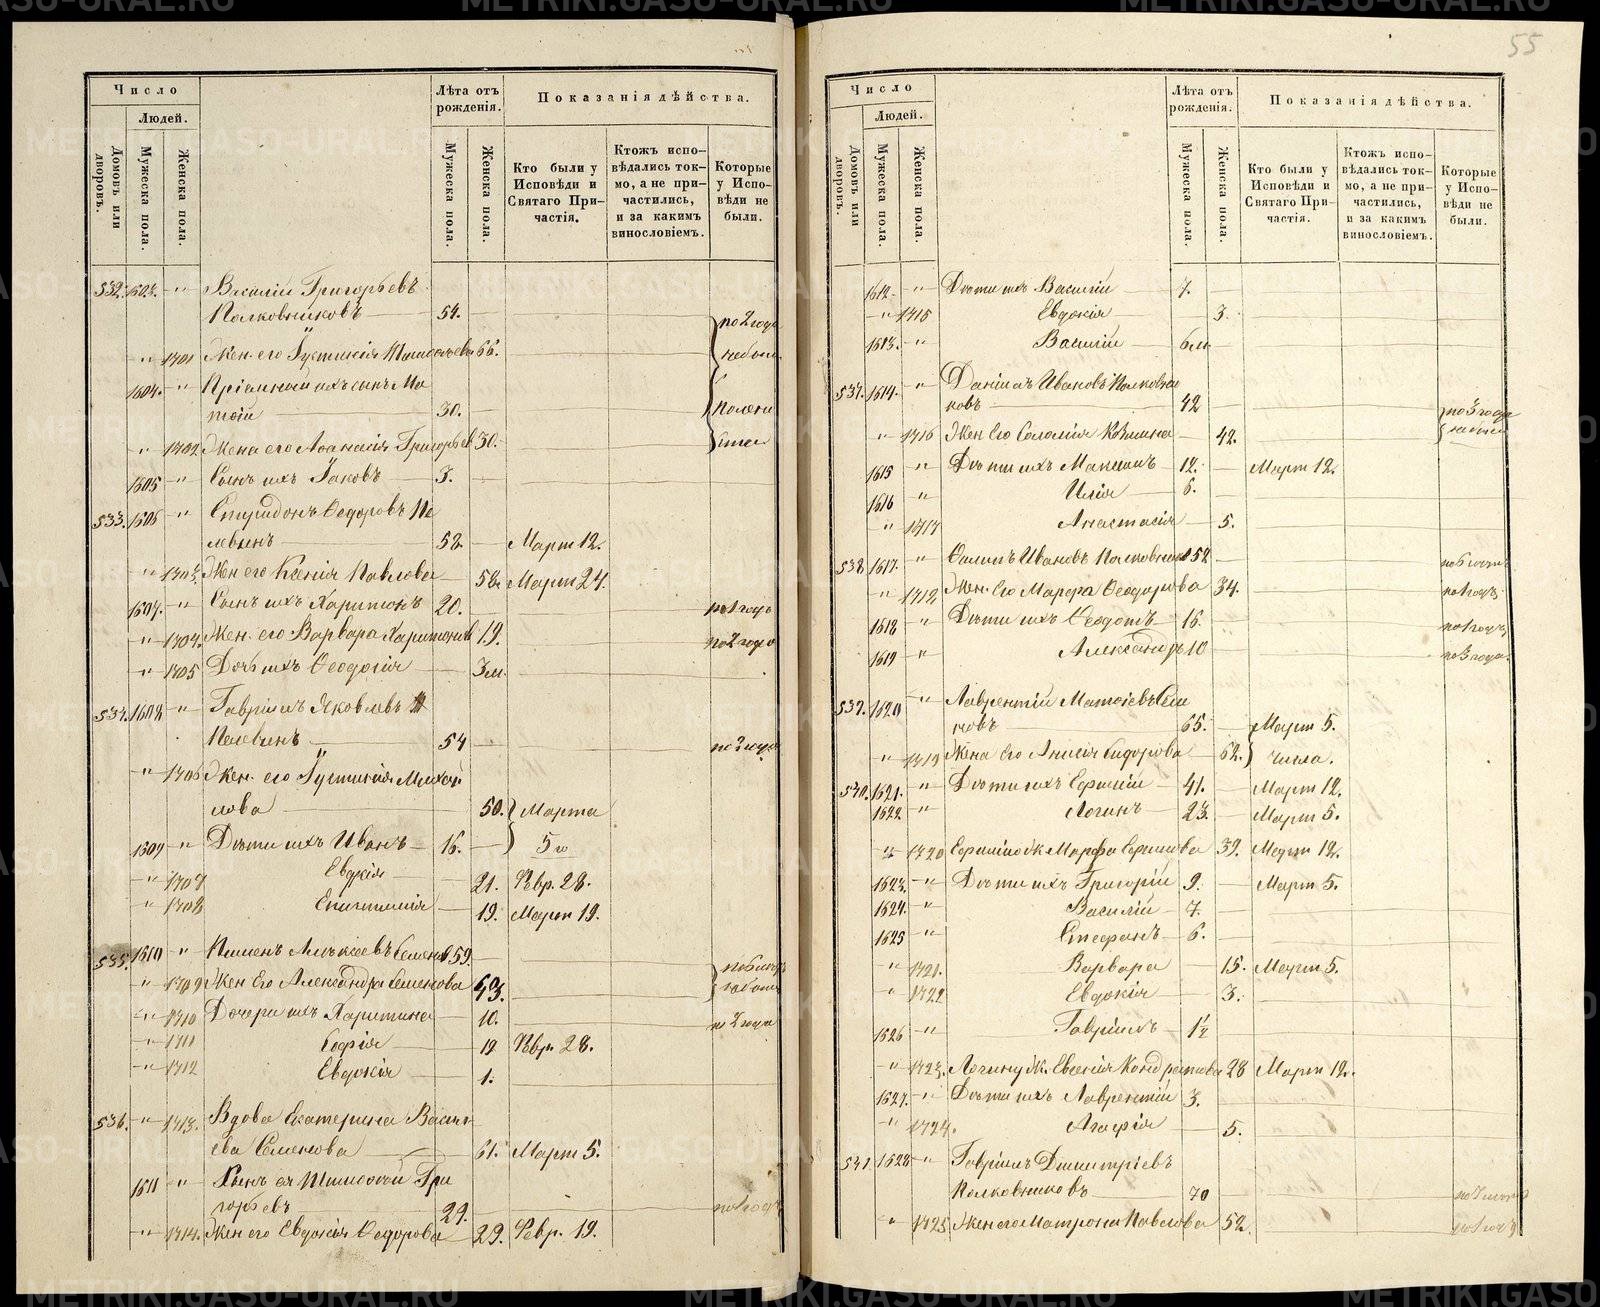 55
Число
Людей.
Домовъ или дворовъ.
Мужеска пола.
Женска пола.
Лѣта отъ рожденія.
Мужеска пола.
Женска пола.
Показанія дѣйства.
Кто были у Исповѣди и Святаго При-
частія.
Ктожъ испо-
вѣдались ток-
мо, а не при-
частились,
и за какимъ
винословіемъ.
Которые
у Испо-
вѣди не
были.
532. 1603. " Василій Григорьевъ
Полковниковъ 54. по 2 года
" 1701 Жен. его Іустинія 66. небыли
1604. " Пріемный ихъ сынъ Ма
тѳій 30.
" 1702 Жена его Аѳанасія Григорьев 30.
1605 " Сынъ ихъ Іаковъ 3.
533. 1606 " Спиридонъ Ѳедоровъ Пе
левинъ 58. Март 12.
" 1703. Жен его Ксенія Павлова 58. Март 24.
1607. " Сынъ ихъ Харитонъ 20. по 1 году
" 1704. Жен. его Варвара Харитонов 19. по 2 года
" 1705 Дочь ихъ Ѳеодосія 3 м.
534. 1608 " Гавріилъ Яковлевъ
Пелевинъ 54 по 2 года
" 1706 Жен. его Іустинія Михай
лова 50. Марта
1609 " Дѣти ихъ Иванъ 16. 5 го
" 1707 Евдокія 21. Февр. 28.
" 1708 Епистимія 19. Март 19.
535. 1610 " Пименъ Алексѣевъ Семенов 59.
" 1709 Жен Его Александра Семенова 43.
" 1710 Дочери ихъ Харитина 10. по 2 года
" 1711 Софія 19 Февр. 28.
" 1712 Евдокія 1.
536. " 1713. Вдова Екатерина Василь
ева Семенова 61. Март 5.
1611 " Сынъ ея Тимоѳей Гри
горьевъ 29. по 1 году
" 1714. Жен его Евдокія Ѳедорова 29. Февр. 19.
Число
Людей.
Домовъ или дворовъ.
Мужеска пола.
Женска пола.
Лѣта отъ рожденія.
Мужеска пола.
Женска пола.
Показанія дѣйства.
Кто были у
Исповѣди и
Святаго При-
частія.
Ктожъ испо-
вѣдались ток-
мо, а не при-
частились,
и за какимъ
винословіемъ.
Которые
у Испо-
вѣди не
были.
1612. " Дѣти ихъ Василій 7.
" 1715 Евдокія 3.
1613. " Василій 6 м
537. 1614. " Даніилъ Ивановъ Полковни
ковъ 42 по 3 года
" 1716 Жен Его Соломія Козмина 42. небыли
1615 " Дѣти ихъ Максимъ 12. Март 12.
1616 " Илія 6.
" 1717 Анастасія 5.
538 1617. " Ѳилипъ Ивановъ Полковников 52
" 1718 Жен. Его Марѳа Ѳеодорова 34. по 1 году
1618 " Дѣти ихъ Ѳеодотъ 16. по 1 году
1619 " Александръ 10 по 3 года
539. 1620 " Лаврентій Матѳіевъ Семе
новъ 65. Март 5.
" 1719 Жена Его Анисія Сидорова 62. числа.
540. 1621. " Дѣти ихъ Герасимъ 41. Март 12.
1622 " Логинъ 23. Март 5.
" 1720 Марѳа 39. Март 12.
1623. " Дѣти ихъ Григорій 9. Март 5.
1624. " Василій 7.
1625 " Стефанъ 6.
" 1721. Варвара 15. Март 5.
" 1722 Евдокія 3.
1626 " Гавріилъ 1½
" 1723. Логину ж. Евгенія Кондратова 28 Март 12.
1627. " Дѣти ихъ Лаврентій 3.
" 1724. Агафія 5.
541. 1628 " Гавріилъ Димитріевъ
Полковниковъ 70
" 1725 Жен его Матрона Павлова 52. по 1 году
METRIKI.GASO-URAL.RU